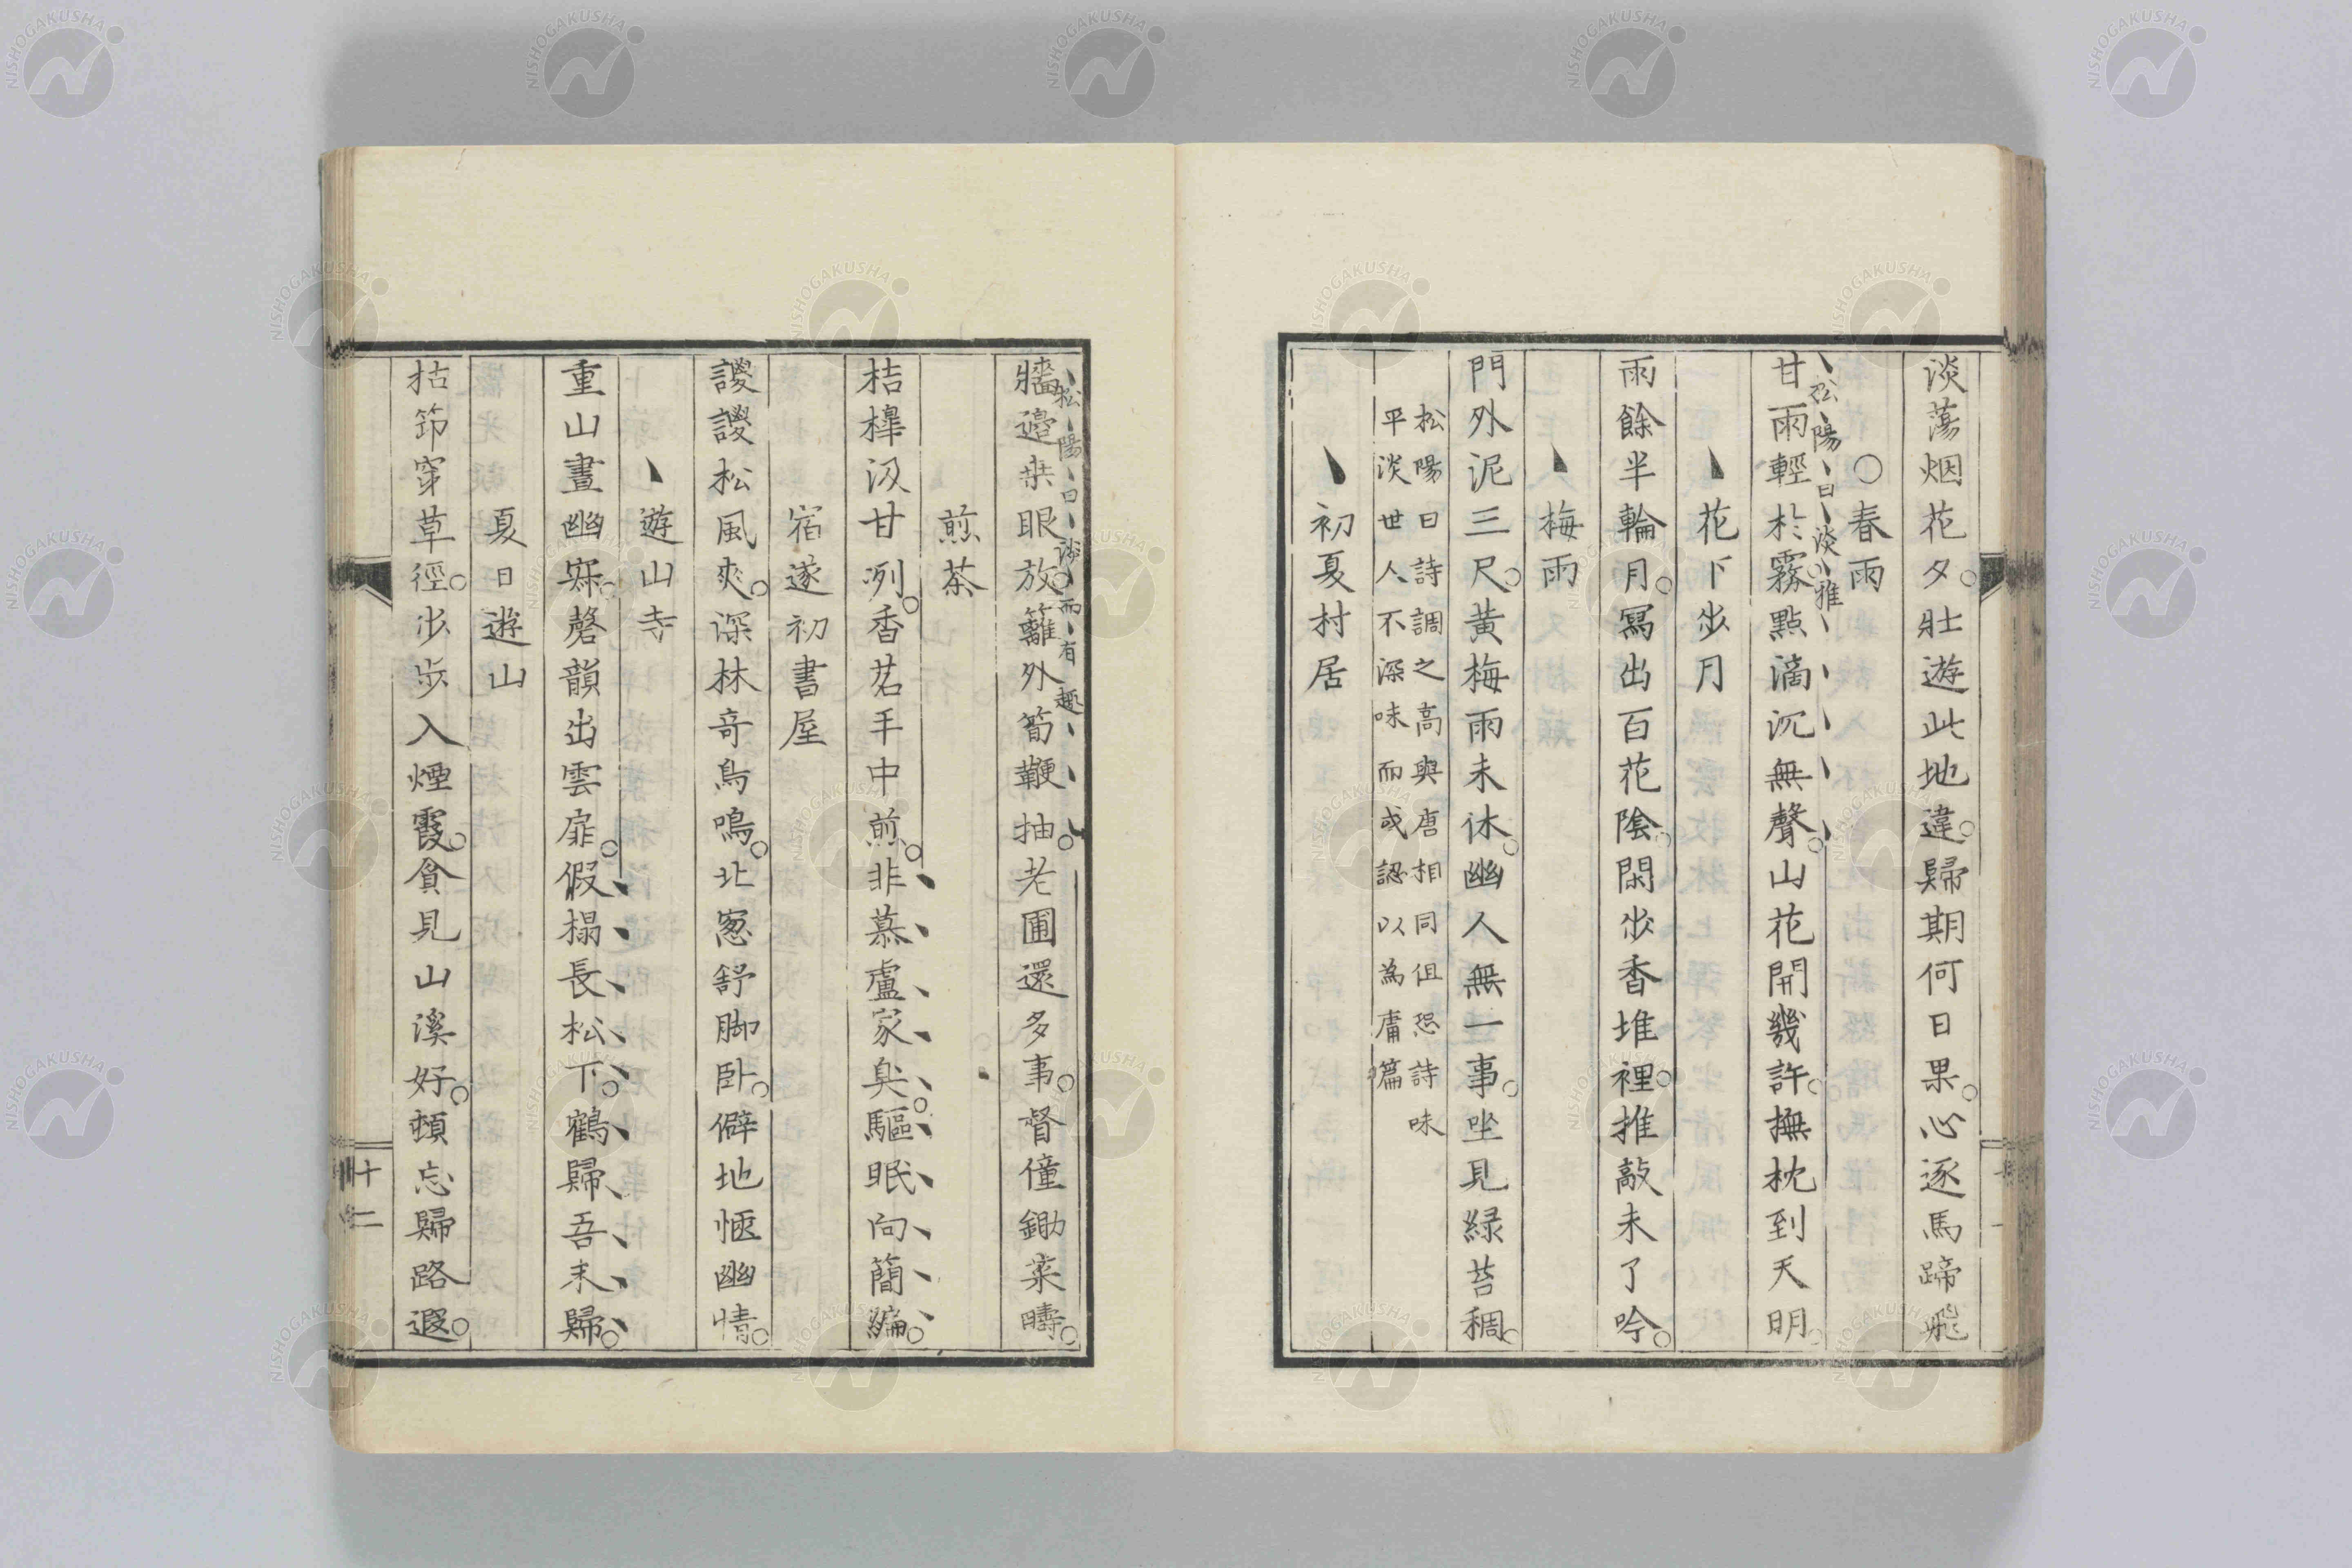 淡蕩烟花夕。壯遊此地違。歸期何日果。心逐馬蹄飛
○春雨
松陽曰淡雅
甘雨輕於霧。點滴沉無聲。山花開幾許。撫枕到天明。
花下步月
雨餘半輪月。寫出百花陰。閑步香堆裡。推敲未了吟。
梅雨
門外泥三尺。黃梅雨未休。幽人無一事。坐見緑苔稠。
松陽曰詩調之高與唐相同但恐詩味
平淡世人不深味而或認以為庸篇
初夏村居
松陽曰淡而有趣
牆邉桒眼放。籬外筍鞭抽。老圃還多事。督僮鋤菜疇。
煎茶
桔槹汲甘冽。香茗手中煎。非慕盧家臭。驅眠向簡編。
宿遂初書屋
謖謖松風爽。深林奇鳥鳴。北窓舒脚卧。僻地愜幽情。
遊山寺
重山晝幽寂。磬韻出雲扉。假榻長松下。鶴歸吾未歸。
夏日遊山
枯筇穿草徑。步步入煙霞。貪見山溪好。頓忘歸路遐。
十二
NISHOGAKUSHA